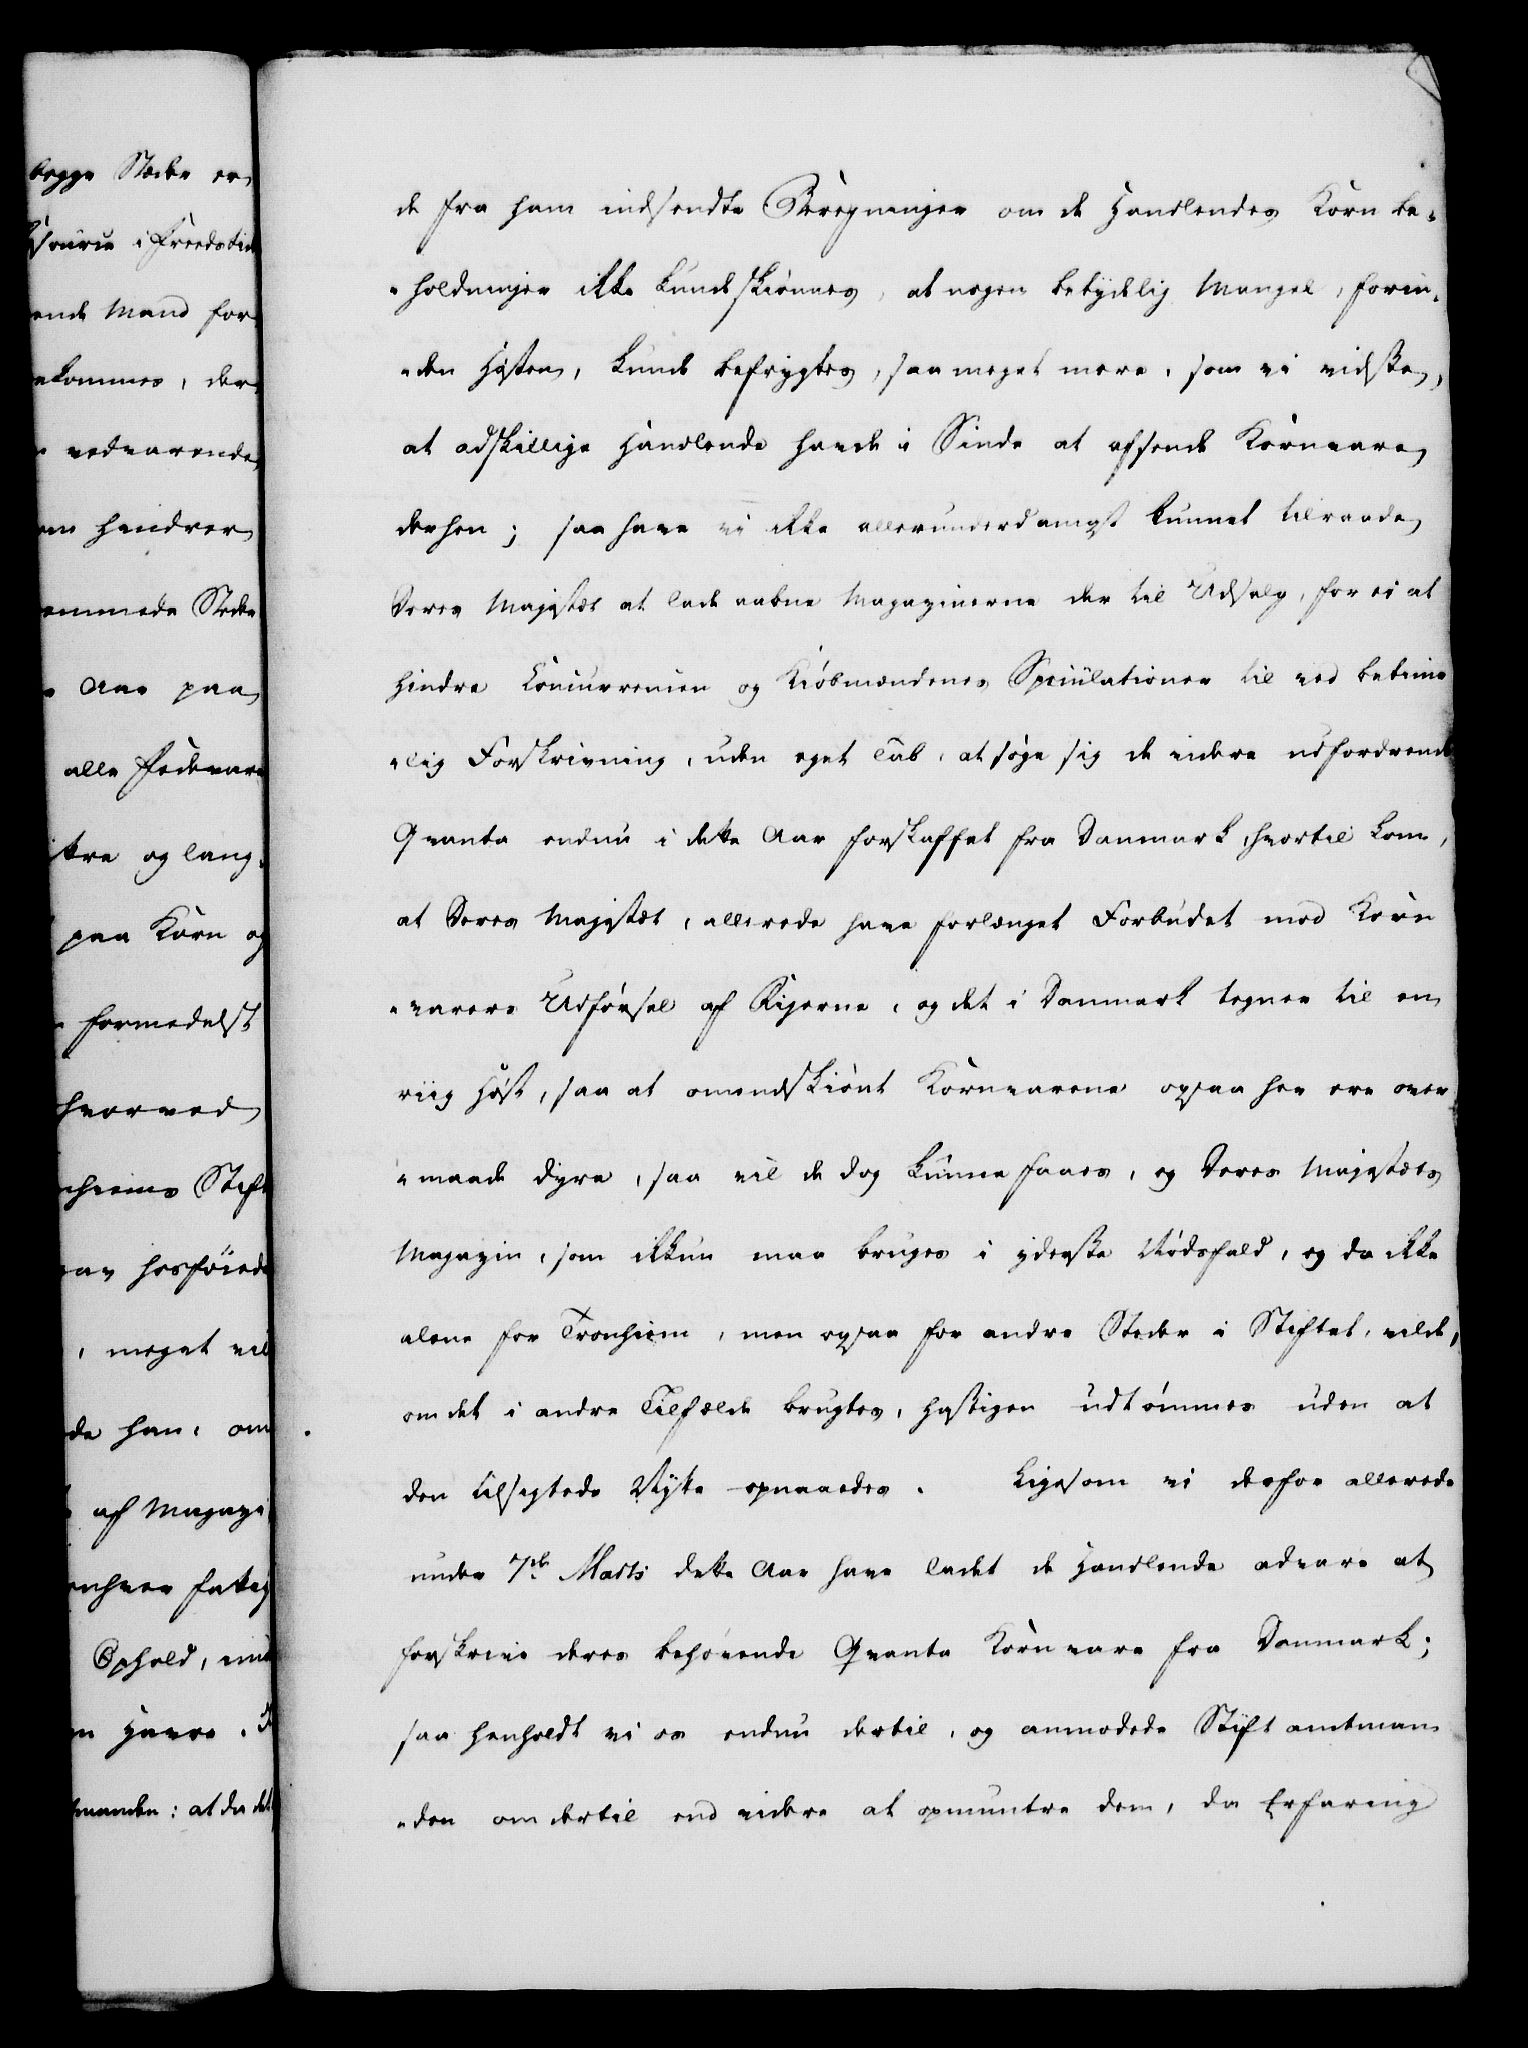 begge Stæder er
i Freedstid
ende Mand for
ekommes, der
vedvarende
hindrer
ommede Steder
Aar paa
alle Fødevare
og lang¬
paa Korn og
formedelst
hvorved
nhiems Stift
hosføiede
, meget vil
de han, om
af Magazi
Ophold,
Havre.
manden: at da det
de fra ham indsendte Beregninger om de Handlendes Korn be„
„holdninger ikke kunde skiønnes, at nogen betydelig Mangel, forin„
„den Høsten, kunde befrygtes, saa meget mere, som vi vidste,
at adskillige Handlende havde i Sinde at afsende Kornvare
derhen; saa have vi ikke allerunderdanigst kunnet tilraade
Deres Majestæt at lade aabne Magazinerne der til Udsalg, for ei at
hindre Concurrencen og Kiøbmændenes Speculationer til ved betime
„lig Forskrivning, uden eget Tab, at søge sig de videre udfordrende
Qvanta endnu i dette Aar forskaffet fra Danmark, hvortil kom,
at Deres Majestæt, allerede have forlænget Forbudet mod Korn
„varers Udførsel af Rigerne, og det i Danmark tegner til en
riig Høst, saa at omendskiønt Kornvarene ogsaa her ere over
„maade dyre, saa vil de dog kunne faaes, og Deres Majestæts
Magazin, som ikkun maa bruges i yderste Nødsfald, og da ikke
alene for Tronhiem, men ogsaa for andre Steder i Stiftet, vilde,
om det i andre Tilfælde brugtes, hastigen udtømmes uden at
den tilsigtede Nytte opnaaedes. Ligesom vi derfor allerede
under 7de Marts dette Aar have ladet de Handlende advare at
forskrive deres behøvende Qvanta Kornvare fra Danmark;
saa henholdt vi os endnu dertil, og anmodede Stiftamtman
„den om dertil end videre at opmuntre dem, da Erfaring